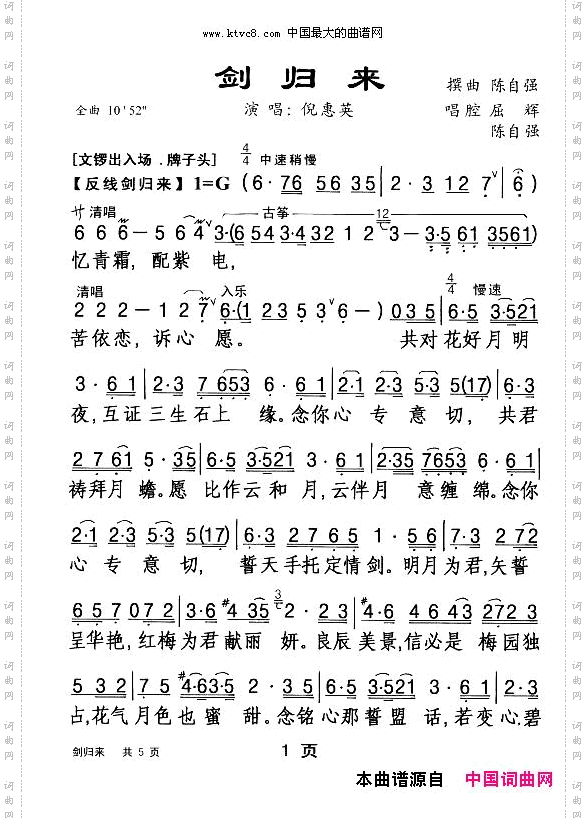 www.ktvc8.com 中国最大的曲谱网
剑归来
撰曲 陈自强
全曲 10'52"
演唱：倪惠英
唱腔 屈辉
陈自强
[文锣出入场．牌子头] 4/4 中速稍慢
【反线剑归来】1=G (6·76 56 35 | 2·3 12 7ᵛ | 6)
サ清唱 古筝 12
6 6 6 － 5 6 4ᵛ 3·(6 54 3·4 32 1 2 3－ 3·5 61 3561)
忆青霜，配紫 电，
清唱 入乐 4/4 慢速
2 2 2 － 1 2 7ᵛ 6·(1 2 3 5 3ᵛ 6 －) 035 | 6·5 3·521
苦依恋，诉心 愿。 共对花好月明
3·61 | 2·3 7653 | 6·(61) | 2·1 2·3 5·3 5(17) | 6·3
夜，互证三生石上 缘。念你心 专意切， 共君
2761 5·35 | 6·5 3·521 3·(61 | 2·35 7653 6·61 |
祷拜月 蟾。愿 比作云和 月，云伴月 意缠 绵。念你
2·1 2·3 5·3 5(17) | 6·3 2765 1·56 | 7·3 272
心 专 意 切， 誓天手托定情剑。明月为君，矢誓
657072 | 3·6 #435 2·23 | #4643 2722 7
呈华艳，红梅为君献丽 妍。良辰美景，信必是 梅园独
5 32 | 5·5 #4·63·5 | 3·35 2·327 6·56
占，花气月色也蜜 甜。念铭心那誓盟 话，若变心，碧
剑归来 共 5 页
1 页
本曲谱源自 中国词曲网
词曲网